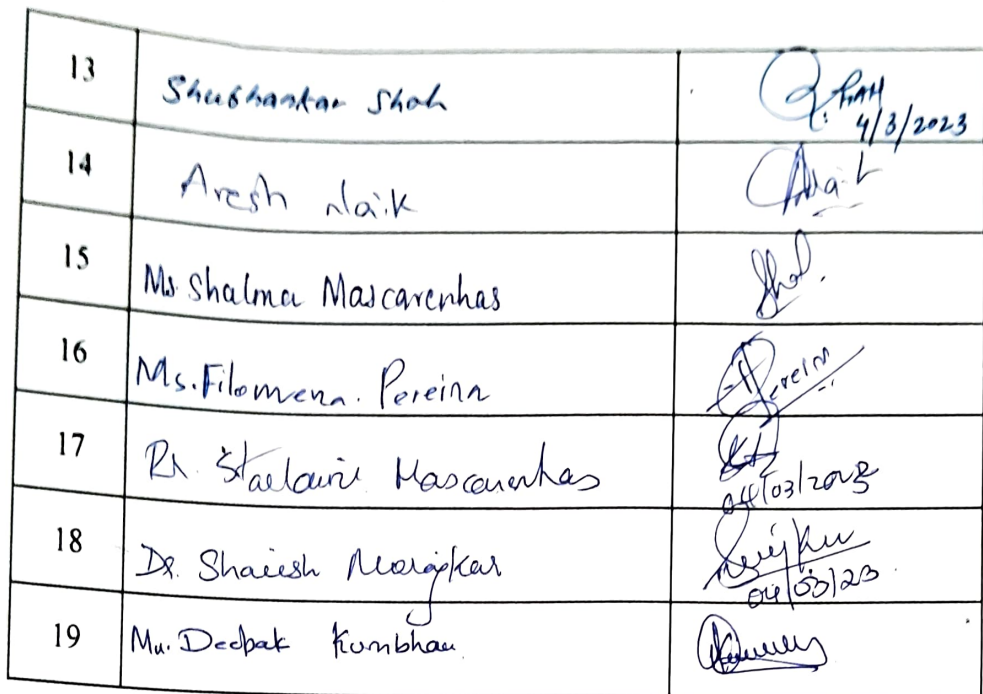 13 Shubhankar Shah
4/3/2023
14 Aresh Naik Naik
15 Ms. Shalma Mascarenhas Shal.
16 Ms. Filomena. Pereira Pereira
17 Mascarenhas
04/03/2023
18 Dr. Shailesh Morajkar
04/03/23
19 Mr. Deepak Kumbhar